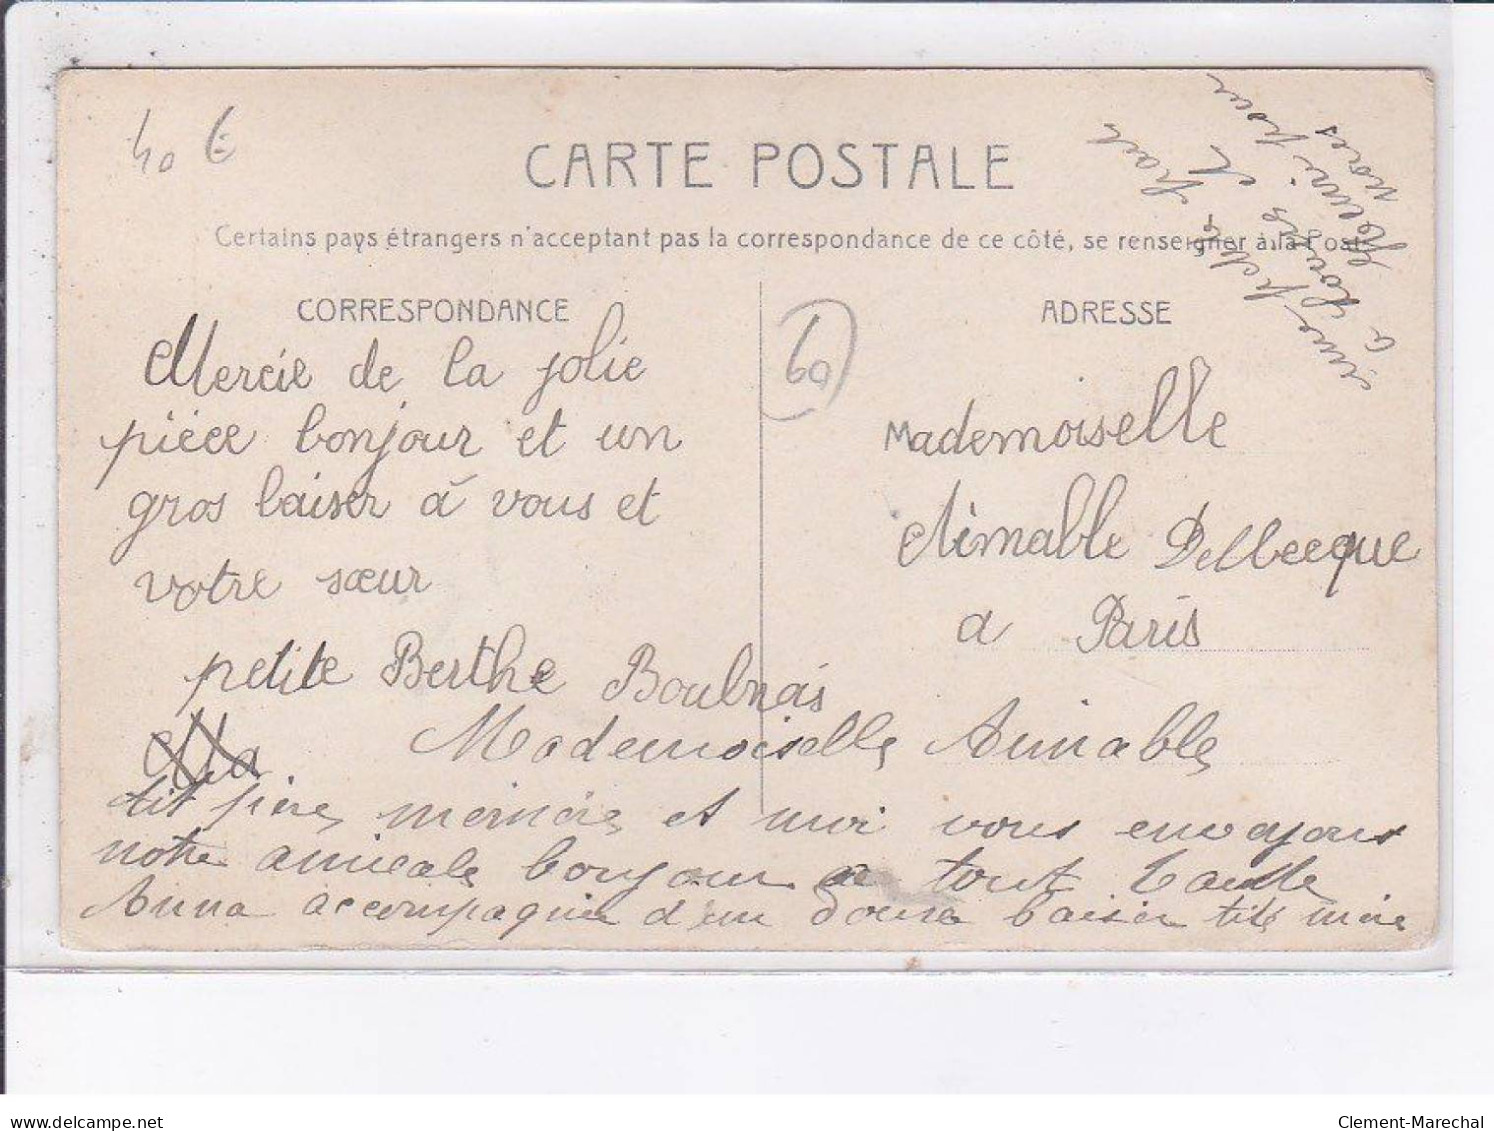 40 €
CARTE POSTALE
Certains pays étrangers n'acceptent pas la correspondance de ce côté, se renseigner à la Poste
CORRESPONDANCE
Mercie de la jolie
pièce bonjour et un
gros baiser à vous et
votre sœur
petite Berthe Boulnois
60
ADRESSE
Mademoiselle
Aimable Delbecque
a Paris
Mademoiselle Aimable
tit père mémére et moi vous envoyons
notre amicale bonjour a tout
Anna accompagnier d'un douse baiser tité mère
une
a Louis et
Henri pour